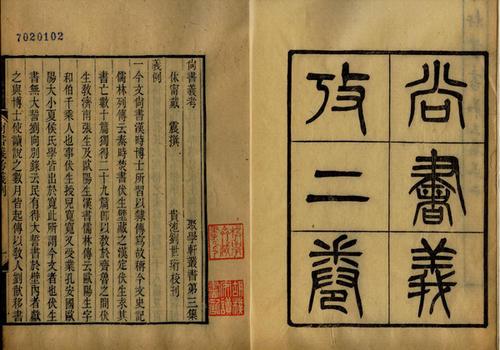 尚書義
攷二卷
尚書義考 聚學軒叢書第三集
休甯戴 震撰 貴池劉世珩校刊
義例
一今文尚書漢時博士所習以隸傳寫故稱今文史記
儒林列傳云秦時焚書伏生壁藏之漢定伏生求其
書亡數十篇獨得二十九篇卽以敎於齊魯之間伏
生敎濟南張生及歐陽生漢書儒林傳云歐陽生字
和伯千乘人也事伏生授兒寬寬又受業孔安國歐
陽大小夏侯氏學皆出於寬此所謂今文者也伏生
書無大誓劉向別錄云民有得大誓書於壁內者獻
之與博士使讀說之數月皆起傳以敎人劉歆移書
7020102